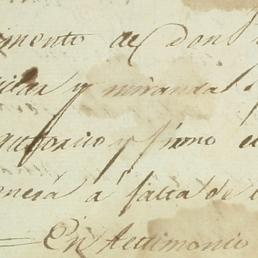 imento de don
y miranda
autorico y firmo e
a falta de
En testimonio